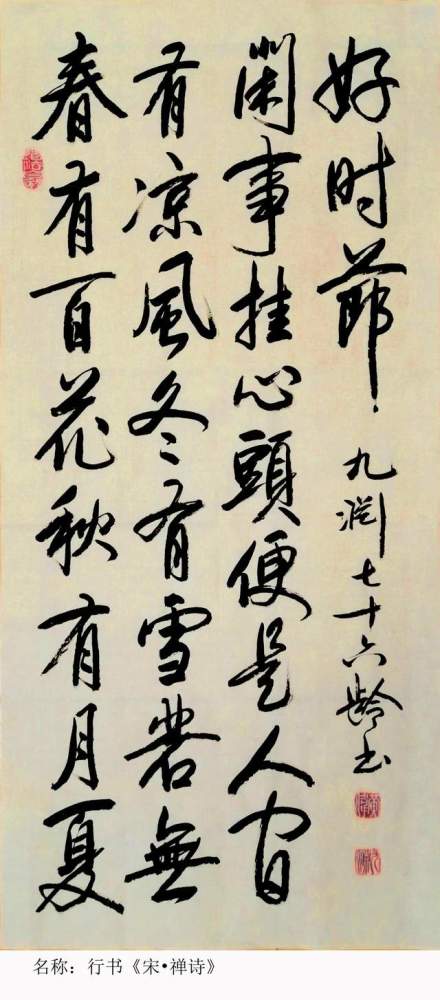 春有百花秋有月夏
有凉風冬有雪若無
閑事挂心頭便是人间
好时節
九渊七十六龄书
名称：行书《宋•禅诗》